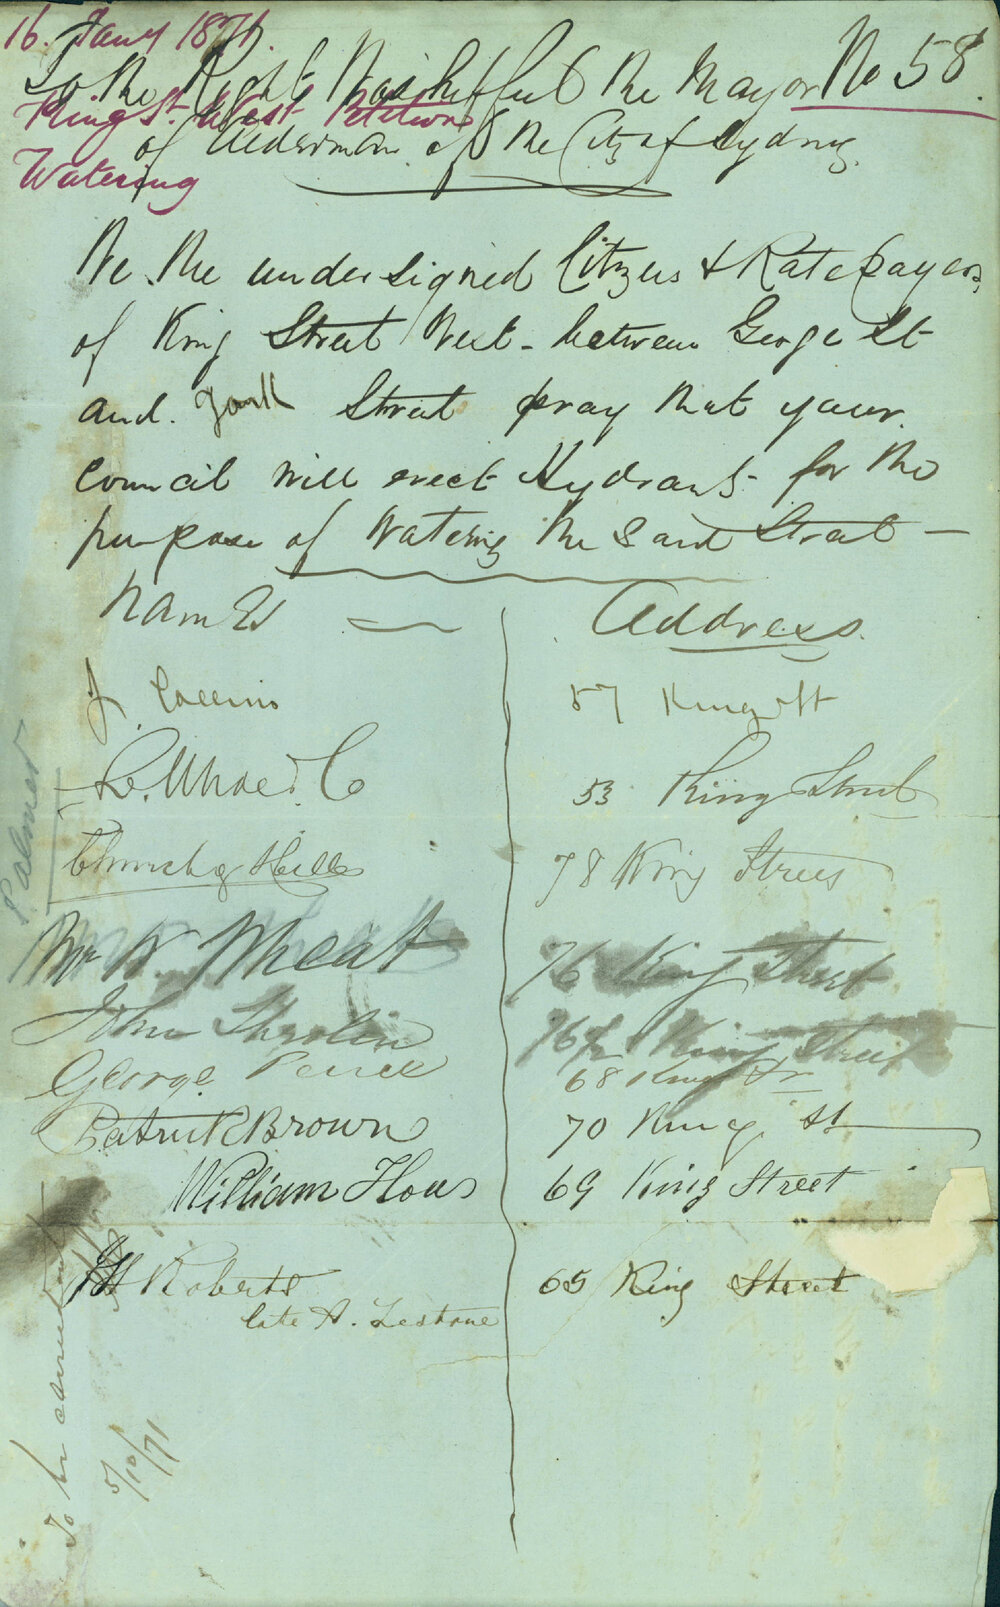 16. Jany 1871.
No 58.
To the Right Worshipful the Mayor
King St. West Petition
of Alderman of the City of Sydney
Watering
We the undersigned Citzens & Rate Payers
of King Street West - between George St
and York Street pray that your
Council will erect Hydrants for the
purpose of Watering the said Street —
Names
Address
J Collins
57 King St
& Co
53 King Street
Church & Hills
78 King Street
Palmer
Mr W. Wheat
76 King Street
John
76½ King Street
George Peirce
68 King St
Patrick Brown
70 King St
William Hows
69 King Street
JH Roberts
65 King Street
late A. Lestone
To be
5/10/71